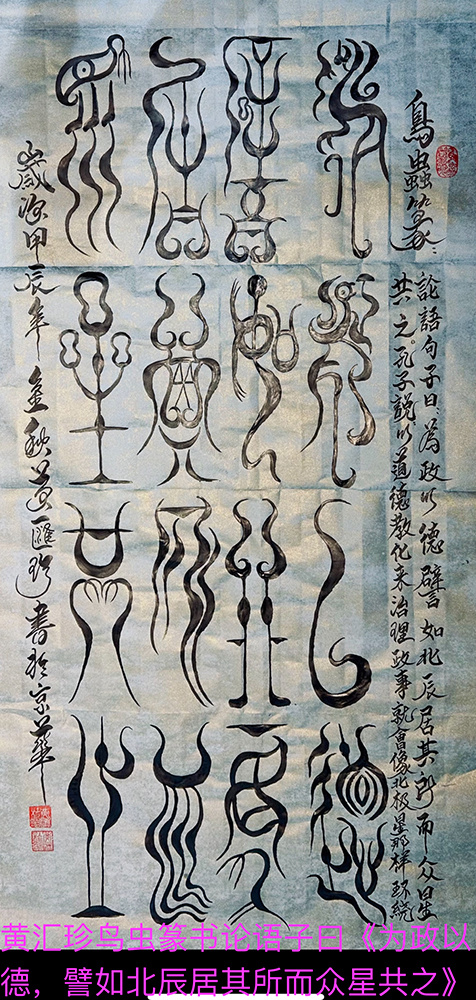 鳥蟲篆:
論語句子曰:為政以德譬如北辰居其所而众星
共之。孔子說以道德教化来治理政事就會像北极星那样环绕
為政以德
譬如北辰
居其所而
眾星共之
歲次甲辰年金秋黄匯珍書於京華
黄汇珍鸟虫篆书论语子曰《为政以
德，譬如北辰居其所而众星共之》